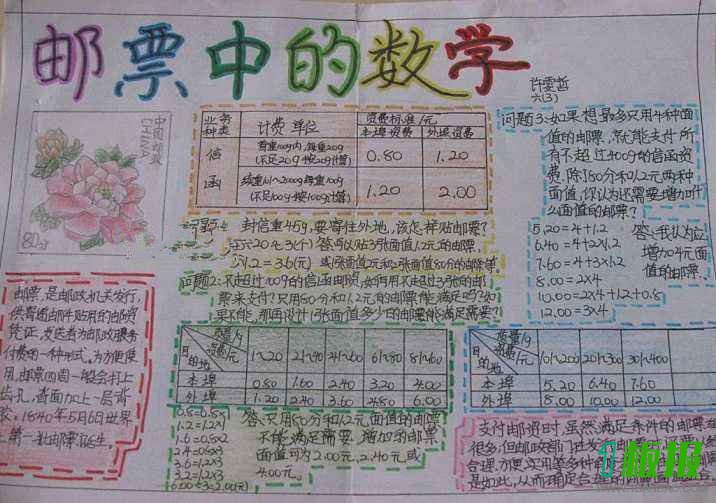 邮票中的数学
许雯哲
六(3)
中国邮政
CHINA
80分
业务种类
计费单位
资费标准/元
本埠资费
外埠资费
信
函
首重100g内,每重20g
(不足20g按20g计算)
0.80
1.20
续重101~2000g每重100g
(不足100g按100g计算)
1.20
2.00
封信重45g,要寄往外地,该怎样贴邮票?
答:可以贴3张面值1.2元的邮票.
×1.2=3.6(元)
问题2:不超过100g的信函邮资,如何用不超过3张的邮
票来支付?只用80分和1.2元的邮票能满足吗?如
果不能,那再设计1张面值多少的邮票能满足需要?
问题3:如果想最多只用4种面
值的邮票,就能支付所
有不超过400g的信函资
费,除80分和1.2元两种
面值,你认为还需要增加什
么面值的邮票?
5.20=4+1.2
6.40=4+2×1.2
7.60=4+3×1.2
8.00=2×4
10.00=2×4+1.2+0.8
12.00=3×4
答:我认为应
增加4元面
值的邮票.
邮票,是邮政机关发行,
供寄递邮件贴用的邮资
凭证,发送者为邮政服务
付费的一种形式.为方便使
用,邮票四周一般会打上
齿孔,背面加上一层背
胶.1840年5月6日世界
第一批邮票诞生。
目的地
资费/元
质量/g
1~20
21~40
41~60
61~80
81~100
本埠
0.80
1.60
2.40
3.20
4.00
外埠
1.20
2.40
3.60
4.80
6.00
目的地
资费/元
质量/g
101~200
201~300
301~400
本埠
5.20
6.40
7.60
外埠
8.00
10.00
12.00
0.8=0.8×1
1.2=1.2×1
1.6=0.8×2
2.4=0.8×3
3.6=1.2×3
答:只用80分和1.2元面值的邮票
不能满足需要,增加的邮票
面值可为2.00元,2.40元,或
4.00元.
支付邮资时,虽然满足条件的邮票
很多,但邮政部门在发
合理、方便、实用等多种
是如此,从而确定合理的
板报